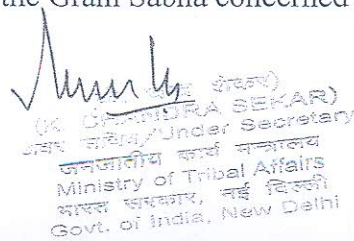 the Gram Sabha concerned
शेखर)
(K. CHANDRA SEKAR)
अवर सचिव/Under Secretary
जनजातीय कार्य मन्त्रालय
Ministry of Tribal Affairs
भारत सरकार, नई दिल्ली
Govt. of India, New Delhi